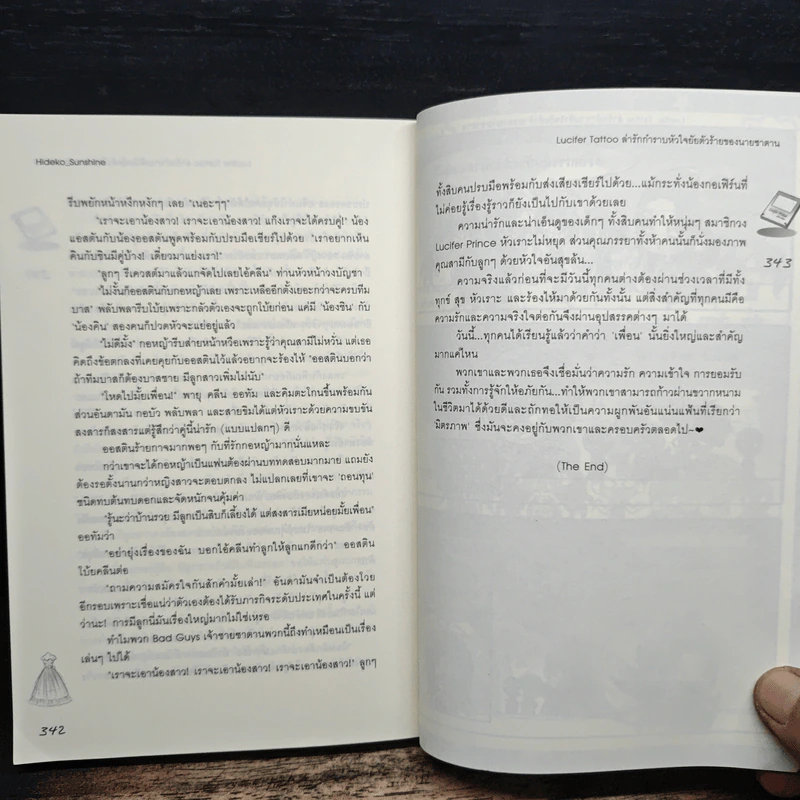 Hideko_Sunshine
รีบพยักหน้าหงึกหงักๆ เลย "เนอะๆๆ"
"เราจะเอาน้องสาว! เราจะเอาน้องสาว! แก๊งเราจะได้ครบคู่!" น้อง
แอสตันกับน้องออสตันพูดพร้อมกับปรบมือเชียร์ไปด้วย "เราอยากเห็น
คินกับชินมีคู่บ้าง! เดี๋ยวมาแย่งเรา!"
"ลูกๆ รีเควสต์มาแล้วแกจัดไปเลยไอ้คลีน" ท่านหัวหน้าวงบัญชา
"ไม่งั้นก็ออสตินกับกอหญ้าเลย เพราะเหลืออีกตั้งเยอะกว่าจะครบทีม
บาส" พลับพลารีบโบ้ยเพราะกลัวตัวเองจะถูกโบ้ยก่อน แค่มี 'น้องชิน' กับ
'น้องคิน' สองคนก็ปวดหัวจะแย่อยู่แล้ว
"ไม่ดีมั้ง" กอหญ้ารีบส่ายหน้าหวือเพราะรู้ว่าคุณสามีไม่หวั่น แต่เธอ
คิดถึงข้อตกลงที่เคยคุยกับออสตินไว้แล้วอยากจะร้องไห้ "ออสตินบอกว่า
ถ้าทีมบาสก็ต้องบาสชาย มีลูกสาวเพิ่มไม่นับ"
"โหดไปมั้ยเพื่อน!" พายุ คลีน ออทัม และคิมตะโกนขึ้นพร้อมกัน
ส่วนอันดามัน กอบัว พลับพลา และสายขิมได้แต่หัวเราะด้วยความขบขัน
สงสารก็สงสารแต่รู้สึกว่าคู่นี้น่ารัก (แบบแปลกๆ) ดี
ออสตินร้ายกาจมากพอๆ กับที่รักกอหญ้ามากนั่นแหละ
กว่าเขาจะได้กอหญ้าเป็นแฟนต้องผ่านบททดสอบมากมาย แถมยัง
ต้องรอตั้งนานกว่าหญิงสาวจะตอบตกลง ไม่แปลกเลยที่เขาจะ 'ถอนทุน'
ชนิดทบต้นทบดอกและจัดหนักจนคุ้มค่า
"รู้นะว่าบ้านรวย มีลูกเป็นสิบก็เลี้ยงได้ แต่สงสารเมียหน่อยมั้ยเพื่อน"
ออทัมว่า
"อย่ายุ่งเรื่องของฉัน บอกไอ้คลีนทำลูกให้ลูกแกดีกว่า" ออสติน
โบ้ยคลีนต่อ
"ถามความสมัครใจกันสักคำมั้ยเล่า!" อันดามันจำเป็นต้องโวย
อีกรอบเพราะเชื่อแน่ว่าตัวเองต้องได้รับภารกิจระดับประเทศในครั้งนี้ แต่
ว่านะ! การมีลูกนี่มันเรื่องใหญ่มากไม่ใช่เหรอ
ทำไมพวก Bad Guys เจ้าชายซาตานพวกนี้ถึงทำเหมือนเป็นเรื่อง
เล่นๆ ไปได้
"เราจะเอาน้องสาว! เราจะเอาน้องสาว! เราจะเอาน้องสาว!" ลูกๆ
342
Lucifer Tattoo ล่ารักกำราบหัวใจยัยตัวร้ายของนายซาตาน
ทั้งสิบคนปรบมือพร้อมกับส่งเสียงเชียร์ไปด้วย...แม้กระทั่งน้องกอเฟิร์นที่
ไม่ค่อยรู้เรื่องรู้ราวก็ยังเป็นไปกับเขาด้วยเลย
ความน่ารักและน่าเอ็นดูของเด็กๆ ทั้งสิบคนทำให้หนุ่มๆ สมาชิกวง
Lucifer Prince หัวเราะไม่หยุด ส่วนคุณภรรยาทั้งห้าคนนั้นก็นั่งมองภาพ
คุณสามีกับลูกๆ ด้วยหัวใจอันสุขล้น...
ความจริงแล้วก่อนที่จะมีวันนี้ทุกคนต่างต้องผ่านช่วงเวลาที่มีทั้ง
ทุกข์ สุข หัวเราะ และร้องไห้มาด้วยกันทั้งนั้น แต่สิ่งสำคัญที่ทุกคนมีคือ
ความรักและความจริงใจต่อกันจึงผ่านอุปสรรคต่างๆ มาได้
วันนี้...ทุกคนได้เรียนรู้แล้วว่าคำว่า 'เพื่อน' นั้นยิ่งใหญ่และสำคัญ
มากแค่ไหน
พวกเขาและพวกเธอจึงเชื่อมั่นว่าความรัก ความเข้าใจ การยอมรับ
กัน รวมทั้งการรู้จักให้อภัยกัน...ทำให้พวกเขาสามารถก้าวผ่านขวากหนาม
ในชีวิตมาได้ด้วยดีและถักทอให้เป็นความผูกพันอันแน่นแฟ้นที่เรียกว่า
'มิตรภาพ' ซึ่งมันจะคงอยู่กับพวกเขาและครอบครัวตลอดไป~❤
(The End)
343